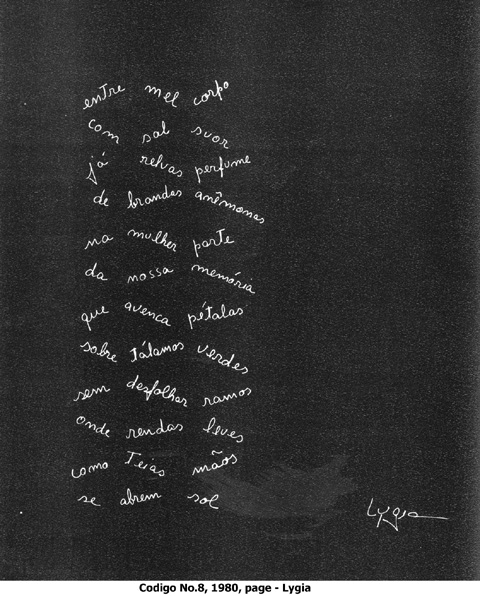 entre mel corpo
com sal suor
já relvas perfume
de brandas anêmonas
na mulher parte
da nossa memória
que avenca pétalas
sobre tálamos verdes
sem desfolhar ramos
onde rendas leves
como teias mãos
se abrem sol
Lygia
Codigo No.8, 1980, page - Lygia